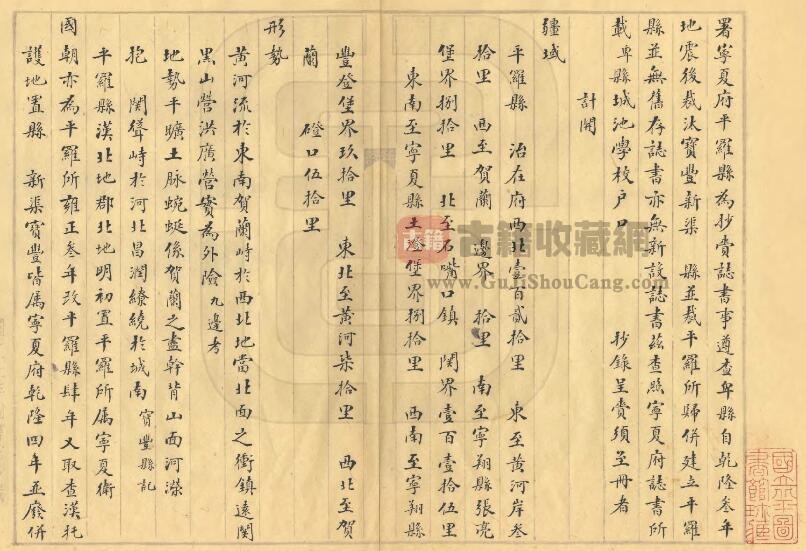 署寧夏府平羅縣為抄賫誌書事遵查卑縣自乾隆叁年
地震後裁汰寳豐新渠 縣並裁平羅所歸併建立平羅
縣並無舊存誌書亦無新設誌書茲查照寧夏府誌書所
載卑縣城池學校户口 抄錄呈賫須至冊者
計開
疆域
平羅縣 治在府西北壹百貳拾里 東至黄河岸叁
拾里 西至賀蘭 邊界 拾里 南至寧翔縣張亮
堡界捌拾里 北至石嘴口鎮 関界壹百壹拾伍里
東南至寧夏縣王澄堡界捌拾里 西南至寧翔縣
豐登堡界玖拾里 東北至黄河柒拾里 西北至賀
蘭 磴口伍拾里
形勢
黄河流於東南賀蘭峙於西北地當北面之衝鎮遠関
黒山營洪廣營實為外險九邊考
地勢平曠土脉蜿蜒係賀蘭之盡幹背山面河濴
抱 関聳峙於河北昌潤繚繞於城南寳豐縣記
平羅縣漢北地郡北地明初置平羅所属寧夏衛
國朝亦為平羅所雍正叁年改平羅縣肆年又取查漢托
護地置縣 新渠寳豐皆属寧夏府乾隆四年並廢併
古籍收藏網
www.GujiShouCang.com